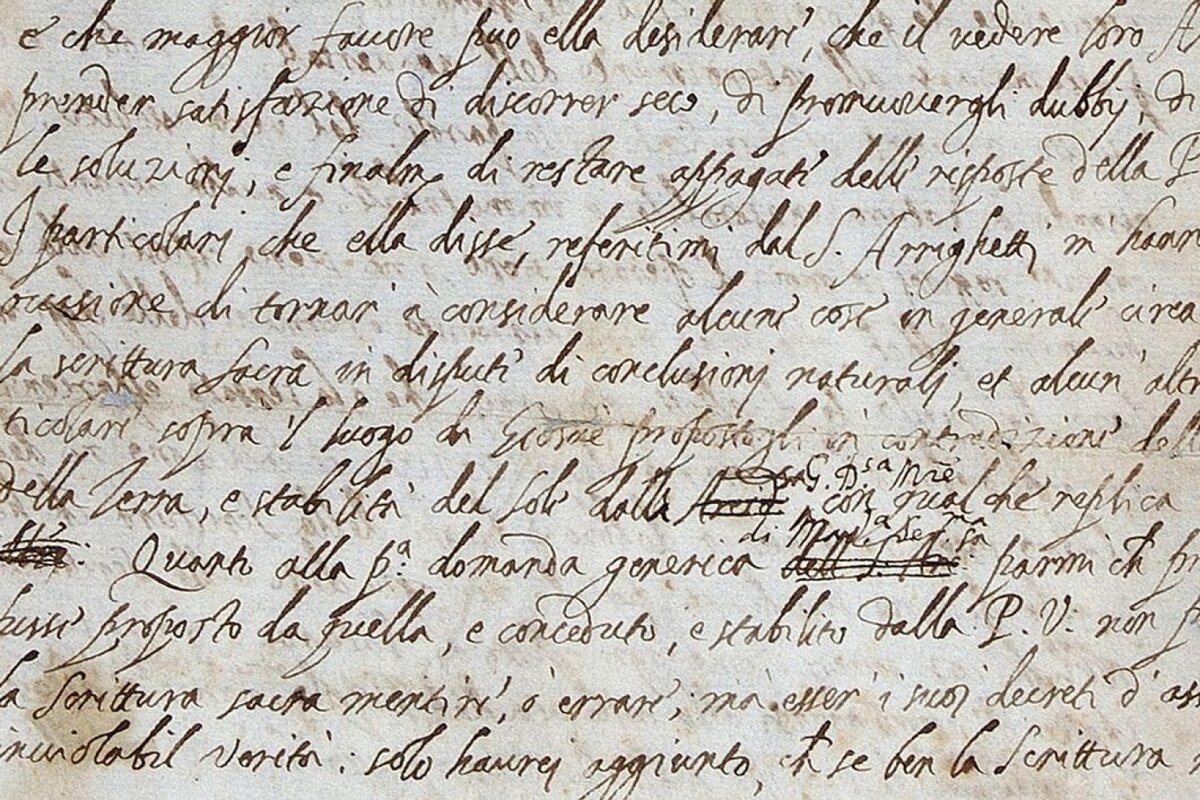 e che maggior favore può ella desiderare, che il vedere loro A
prender satisfazione di discorrer seco, di promuovergli dubbij, di
le soluzionj, e finalm. di restare appagate delle risposte della P
I particolarj che ella disse, referitimi dal S. Arrighetti m' hann
occasione di tornar' à considerare alcune cose in generale circa
la scrittura sacra in dispute di conclusionj naturalj, et alcun' altr
ticolare sopra 'l luogo di Giosuè propostogli in contradizione del
della Terra, e stabilità del Sole dalla
G. D.sa M.re
con qualche replica
di Mad.a Ser.ma
Quanto alla p.a domanda generica
parmi ch pr
fusse proposto da quella, e conceduto, e stabilito dalla P. V. non p
la Scrittura sacra mentire, ò errare; ma esser' i suoi decreti d' as
inviolabil verità: solo haurej aggiunto, ch se ben la Scrittura